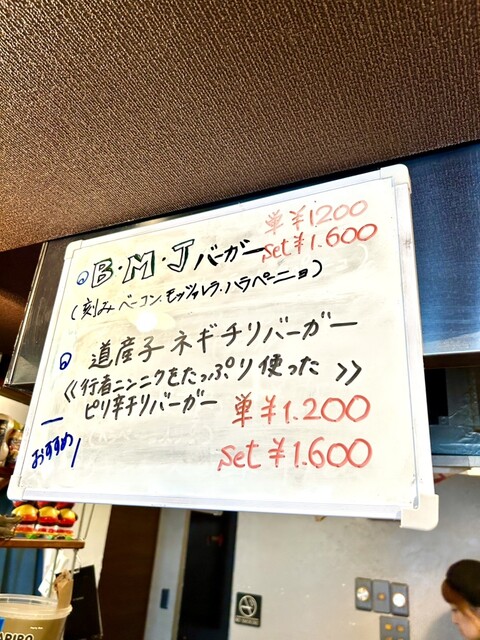 単 ¥1200
B・M・J バーガー set ¥1.600
(刻みベーコン.モッツァレラ.ハラペーニョ)
道産子 ネギチリバーガー
《行者ニンニクをたっぷり使った》
ピリ辛チリバーガー 単 ¥1.200
おすすめ! set ¥1.600
HARIBO